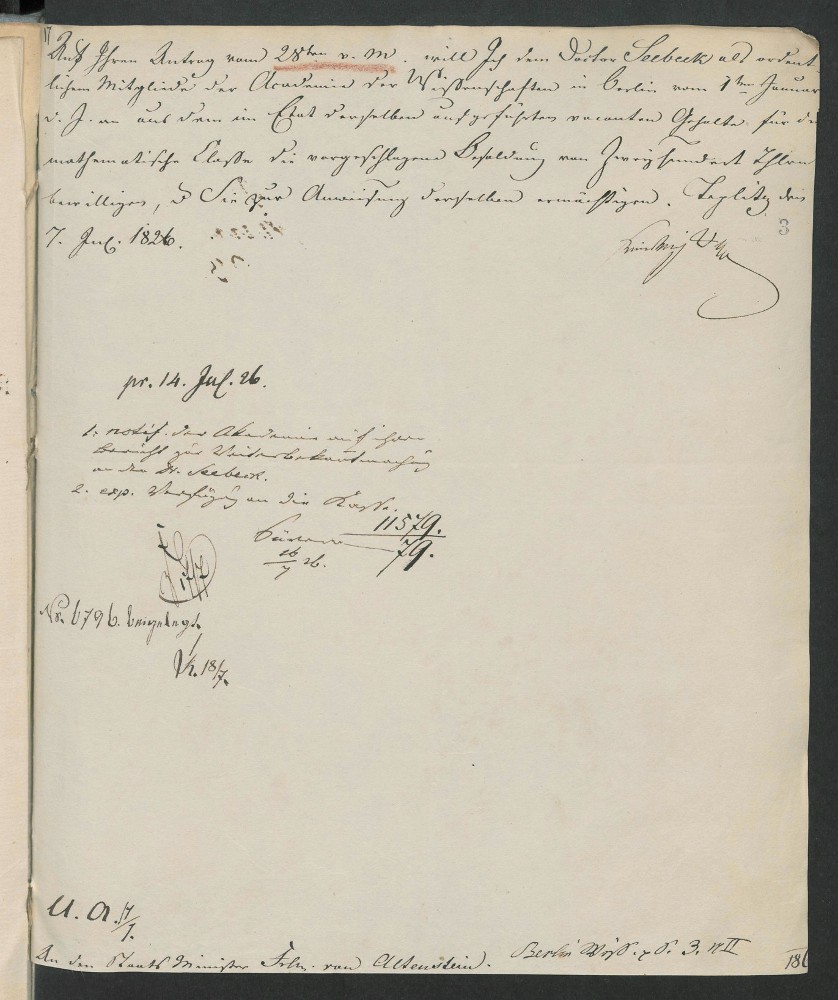 17
Auf Ihren Antrag vom 28ten v. M. will Ich dem Doctor Seebeck als ordent-
lichem Mitgliede der Academie der Wissenschaften in Berlin vom 1ten Januar
d. J. an aus dem im Etat derselben aufgeführten vacanten Gehalte für die
mathematische Classe die vorgeschlagene Besoldung von Zweyhundert Thlrn
bewilligen, u Sie zur Anweisung derselben ermächtigen. Teplitz den
7. Jul. 1826.
3
pr. 14. Jul. 26.
1. notif. der Akademie auf ihren
Bericht zur Weiterbekanntmachung
an den Dr. Seebeck.
2. exp. Verfügung an die Kasse.
11579.
79.
16/7 26.
17/7
No. 6796. beigelegt.
18/7.
U. A. 17/7.
An den Staats Minister Frhn. von Altenstein.
Berlin Wiss. 3. II
186